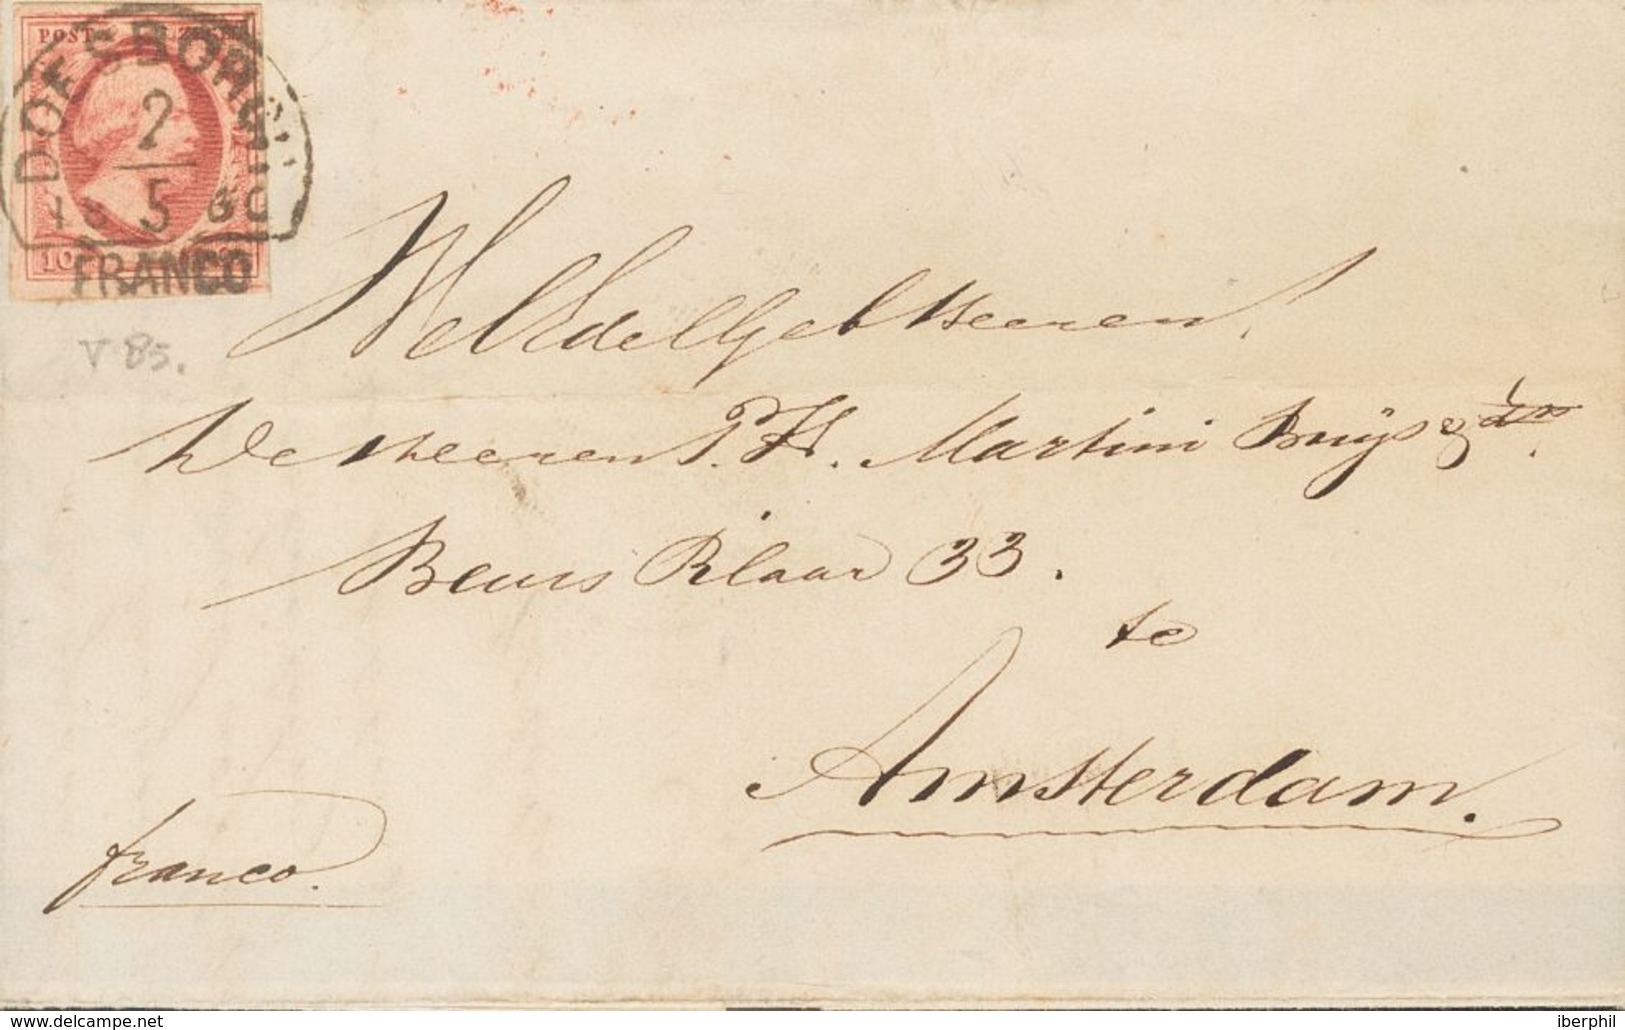 POST ZEGEL
DOESBORGH
2
18 5 60
10
FRANCO
V 85.
WelEdelGeb Heeren
De Heeren P. H. Martini Buijs & Zn.
Beurs Plaar 33.
te
Amsterdam.
franco.
delcampe.net
iberphil